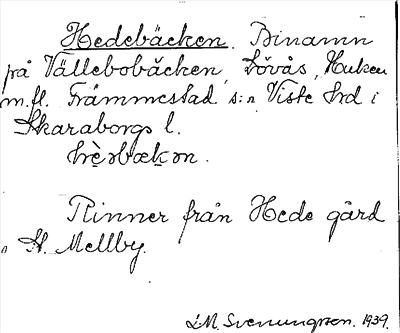 Hedebäcken. Binamn
på Vällebobäcken, Lövås, Huken
m.fl. Främmestad s:n Viste hrd i
Skaraborgs l.

Rinner från Hede gård
St. Mellby.
1939.